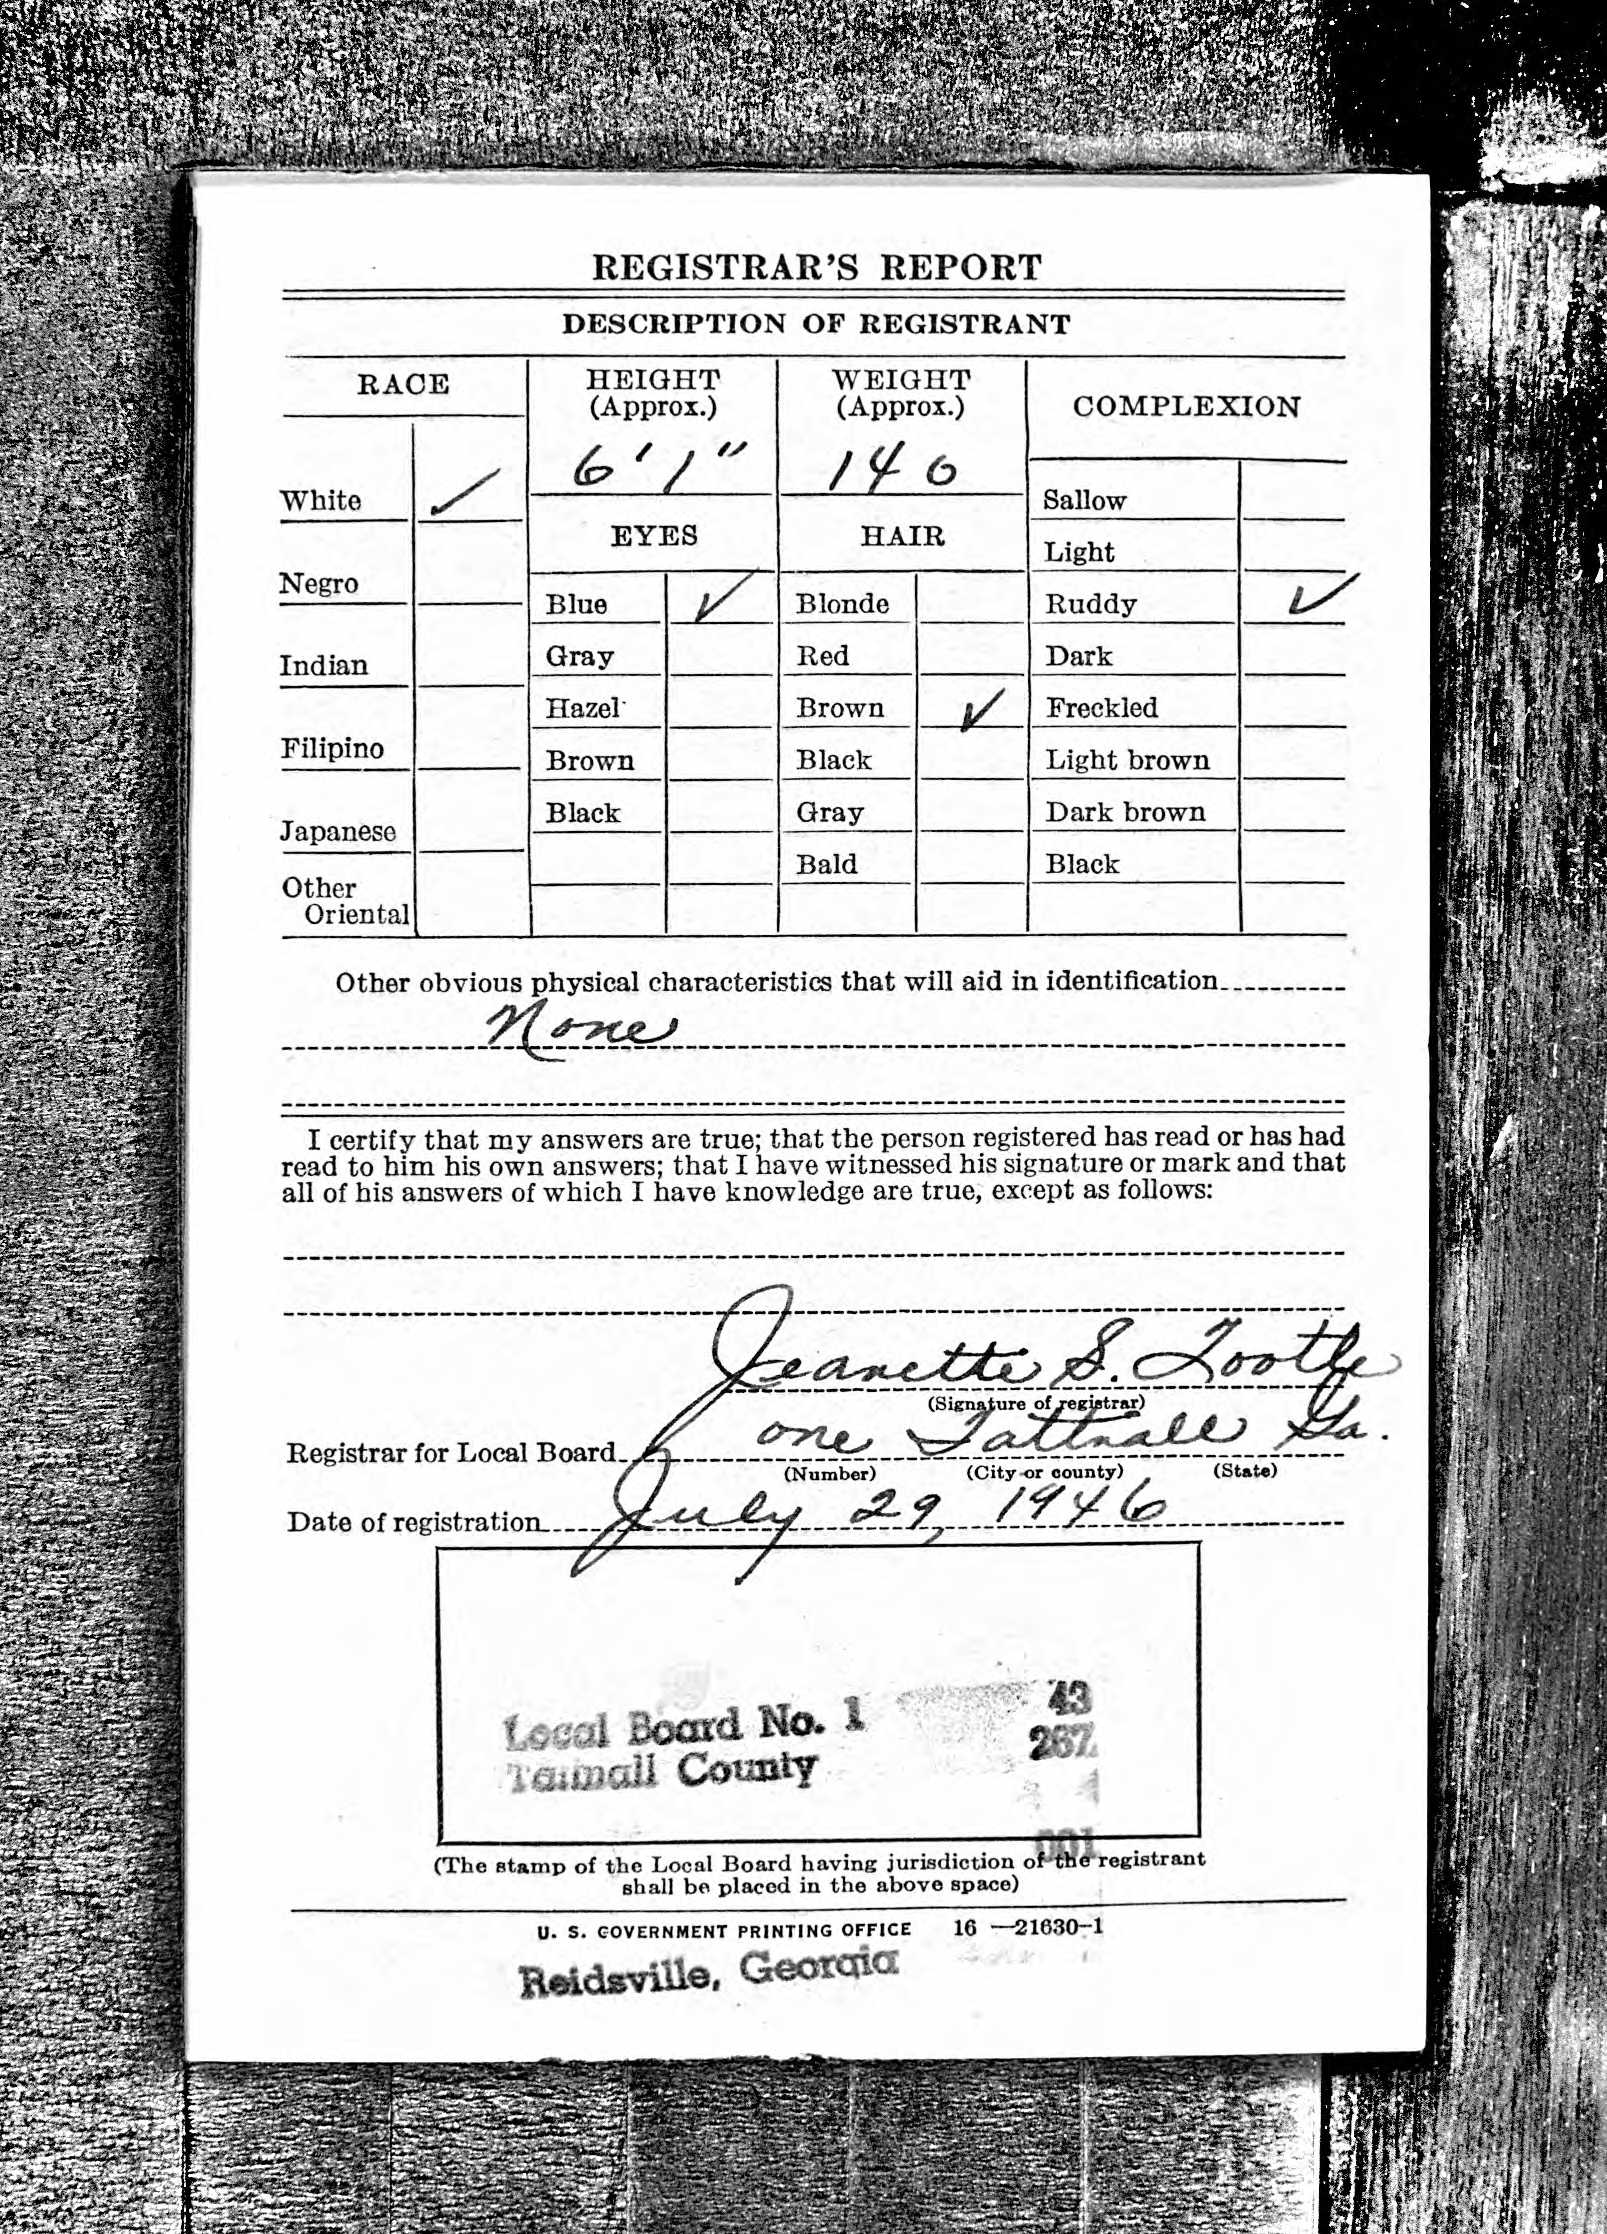 REGISTRAR'S REPORT
DESCRIPTION OF REGISTRANT
RACE
HEIGHT
(Approx.)
WEIGHT
(Approx.)
COMPLEXION
6' 1"
140
White ✓
Negro
Indian
Filipino
Japanese
Other
Oriental
EYES
Blue ✓
Gray
Hazel
Brown
Black
HAIR
Blonde
Red
Brown ✓
Black
Gray
Bald
Sallow
Light
Ruddy ✓
Dark
Freckled
Light brown
Dark brown
Black
Other obvious physical characteristics that will aid in identification
None
I certify that my answers are true; that the person registered has read or has had
read to him his own answers; that I have witnessed his signature or mark and that
all of his answers of which I have knowledge are true, except as follows:
Jeanette S. Tootle
(Signature of registrar)
Registrar for Local Board one Tattnall Ga.
(Number) (City or county) (State)
Date of registration July 29, 1946
Local Board No. 1 43
Tattnall County 267
001
(The stamp of the Local Board having jurisdiction of the registrant
shall be placed in the above space)
U. S. GOVERNMENT PRINTING OFFICE 16—21630-1
Reidsville, Georgia